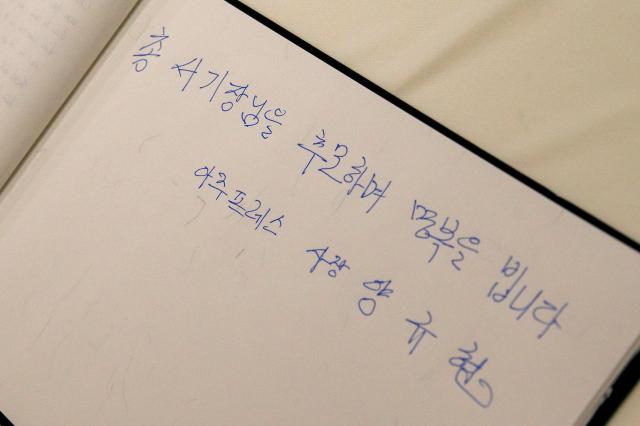 총 사기장님을 추모하며 명복을 빕니다
아주프레스 사장 양 규 현